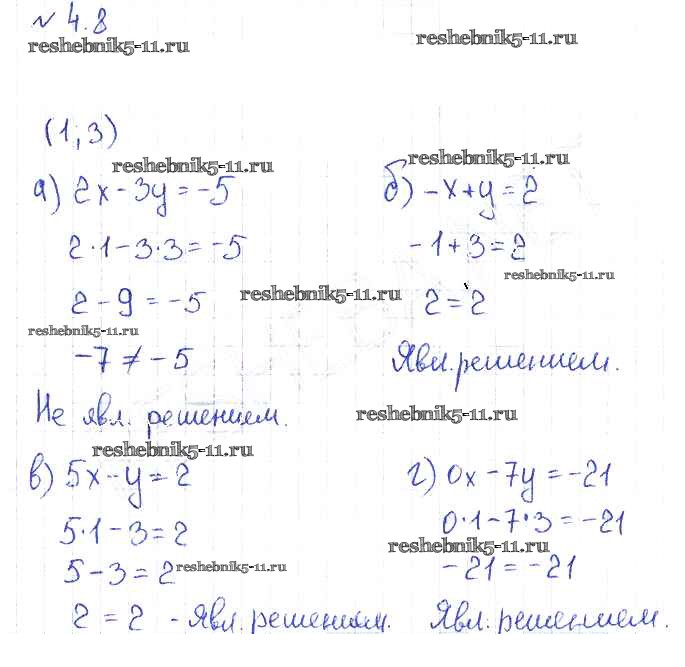 № 4.8
reshebnik5-11.ru
reshebnik5-11.ru
(1; 3)
reshebnik5-11.ru
а) 2x - 3y = -5
2·1 - 3·3 = -5
2 - 9 = -5
reshebnik5-11.ru
reshebnik5-11.ru
-7 ≠ -5
Не явл. решением.
reshebnik5-11.ru
б) -x + y = 2
-1 + 3 = 2
reshebnik5-11.ru
2 = 2
Явл. решением.
reshebnik5-11.ru
reshebnik5-11.ru
в) 5x - y = 2
5·1 - 3 = 2
5 - 3 = 2
reshebnik5-11.ru
2 = 2 - Явл. решением.
г) 0x - 7y = -21
0·1 - 7·3 = -21
reshebnik5-11.ru
-21 = -21
Явл. решением.